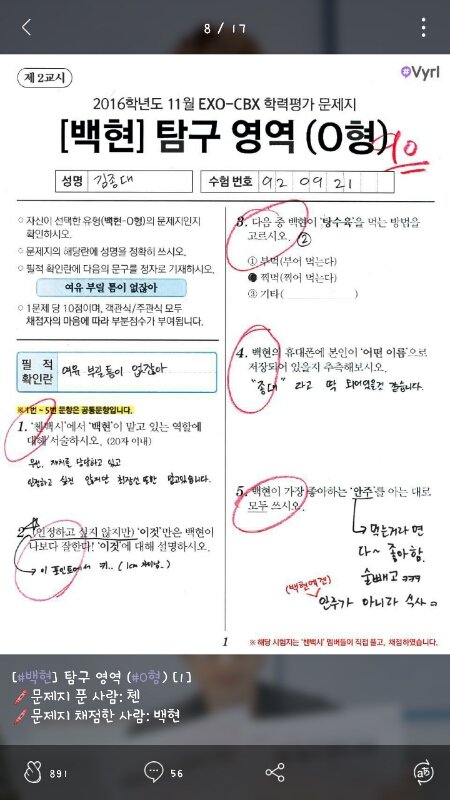 8 / 17
제2교시
#Vyrl
2016학년도 11월 EXO-CBX 학력평가 문제지
[백현] 탐구 영역 (O형)
90
성명
김종대
수험 번호
920921
○ 자신이 선택한 유형(백현-O형)의 문제지인지
확인하시오.
○ 문제지의 해당란에 성명을 정확히 쓰시오.
○ 필적 확인란에 다음의 문구를 정자로 기재하시오.
여유 부릴 틈이 없잖아
○ 1문제 당 10점이며, 객관식/주관식 모두
채점자의 마음에 따라 부분점수가 부여됩니다.
필 적
확인란
여유 부릴틈이 없잖아
※1번 ~ 5번 문항은 공통문항입니다.
1. '첸백시'에서 '백현'이 맡고 있는 역할에
대해 서술하시오. (20자 이내)
우선, 재치를 담당하고 있고
인정하고 싶진 않지만 최장신 또한 맡고있습니다.
2. (인정하고 싶지 않지만) '이것'만은 백현이
나보다 잘한다! '이것'에 대해 설명하시오.
이 포인트에서 키..
3. 다음 중 백현이 '탕수육'을 먹는 방법을
고르시오. ②
① 부먹(부어 먹는다)
② 찍먹(찍어 먹는다)
③ 기타( )
4. 백현의 휴대폰에 본인이 '어떤 이름'으로
저장되어 있을지 추측해보시오.
"종대" 라고 딱 되어있을것 같습니다.
5. 백현이 가장 좋아하는 '안주'를 아는 대로
모두 쓰시오.
먹는거라면
다~ 좋아함.
술빼고 ㅋㅋㅋ
(백현의견)
안주가 아니라 식사 ㅋ
1
※ 해당 시험지는 '첸백시' 멤버들이 직접 풀고, 채점하였습니다.
[#백현] 탐구 영역 (#O형) [1]
문제지 푼 사람: 첸
문제지 채점한 사람: 백현
891
56